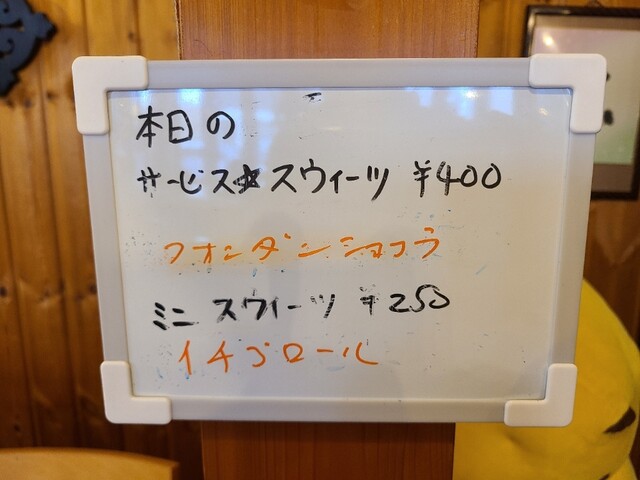 本日の
サービス☆スウィーツ ¥400
フォンダンショコラ
ミニ スウィーツ ¥250
イチゴロール